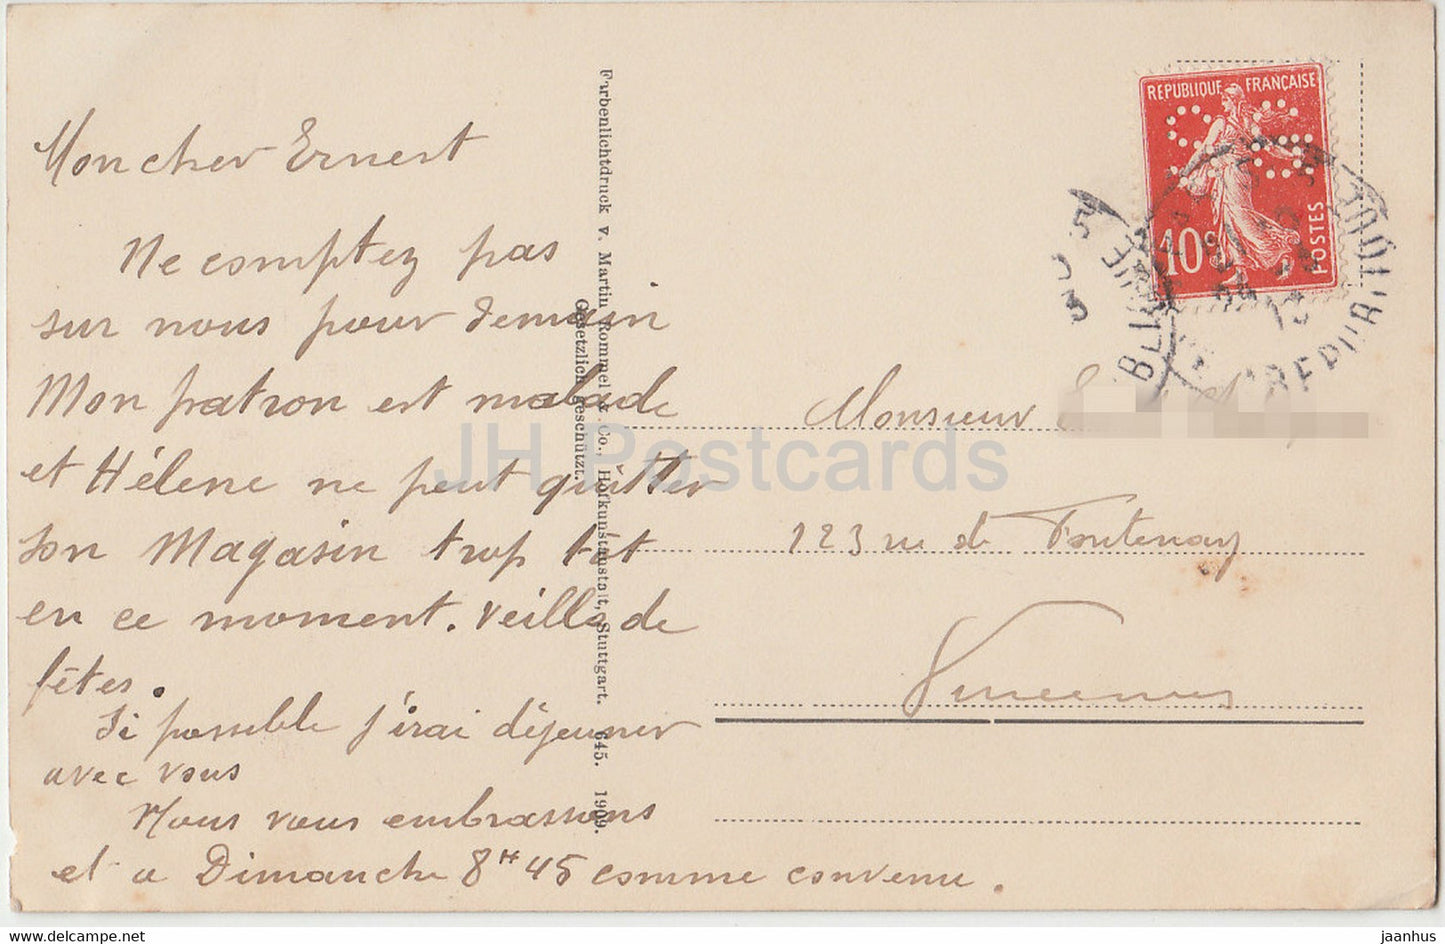 Mon cher Ernest
Ne comptez pas
sur nous pour demain
Mon patron est malade
et Hélène ne peut quitter
son Magasin trop tôt
en ce moment. veille de
fêtes.
Si possible j'irai déjeuner
avec vous
Nous vous embrassons
et a Dimanche 8H 45 comme convenu.
Farbenlichtdruck v. Martin Rommel & Co., Hofkunstanstalt, Stuttgart. 645. 1909.
Gesetzlich geschützt.
REPUBLIQUE FRANÇAISE
10c
POSTES
Monsieur
123 rue de Fontenay
Vincennes
JH Postcards
www.hippostcard.com/store/jaanhus
jaanhus